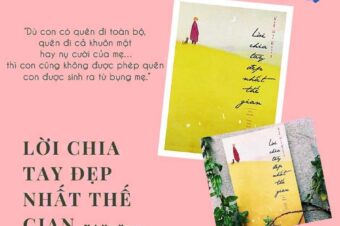 "Dù con có quên đi toàn bộ,
quên đi cả khuôn mặt
hay nụ cười của mẹ...
thì con cũng không được phép quên
con được sinh ra từ bụng mẹ."
LỜI CHIA
TAY ĐẸP
NHẤT THẾ
GIAN
Lời
chia
tay
đẹp
nhất
thế
gian
Lời
chia
tay
đẹp
nhất
thế
gian